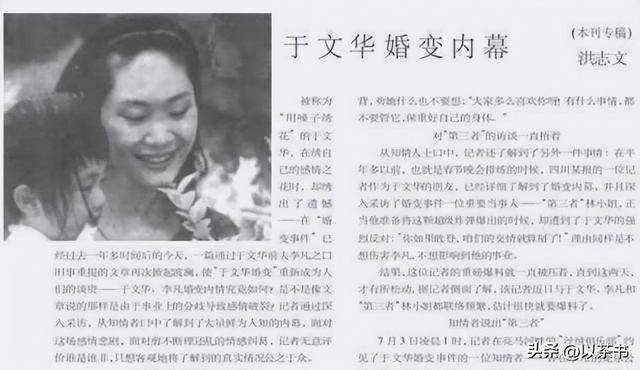 于文华婚变内幕
(本刊专稿)
洪志文
被称为
“用嗓子绣
花”的于文
华，在绣自
己的感情之
花时，却绣
出了遗憾
——在“婚
变事件”已
经过去一年多时间后的今天，一篇通过于文华前夫李凡之口
旧事重提的文章再次掀起波澜，使“于文华婚变”重新成为人
们的谈资——于文华、李凡婚变内情究竟如何？是不是像文
章说的那样是由于事业上的分歧导致感情破裂？记者通过深
入采访，从知情者口中了解到了大量鲜为人知的内幕，面对
这场感情悲剧，面对剪不断理还乱的情感纠葛，记者无意评
价谁是谁非，只想客观地将了解到的真实情况公之于众。
背，劝她什么也不要想：“大家多么喜欢你啊！有什么事情，都
不要管它，保重好自己的身体。”
对“第三者”的访谈一直掐着
从知情人士口中，记者还了解到了另外一件事情：在半
年多以前，也就是春节晚会排练的时候，四川某报的一位记
者作为于文华的朋友，已经详细了解到了婚变内幕，并且深
入采访了婚变事件一位重要当事人——“第三者”林小姐，正
当他准备将这颗超级炸弹爆出的时候，却遭到了于文华的强
烈反对：“你如果敢登，咱们的交情就算崩了！”理由同样是不
想伤害李凡，不想影响到他的事业。
结果，这位记者的重磅爆料就一直被压着，直到这两天，
才有所松动，据记者侧面了解，该记者近日与于文华、李凡和
“第三者”林小姐都联络频繁，估计很快就要爆料了。
知情者说出“第三者”
7月3日凌晨1时，记者在亮马河
见了于文华婚变事件的一位知情者
头条 @以茶书